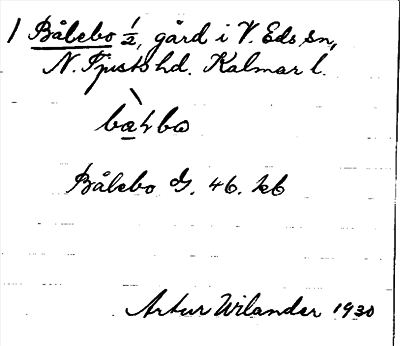 1 Bålebo ½, gård i V. Eds sn,
N. Tjusts hd. Kalmar l.
Bålebo G. 46. kb
Artur Wilander 1930